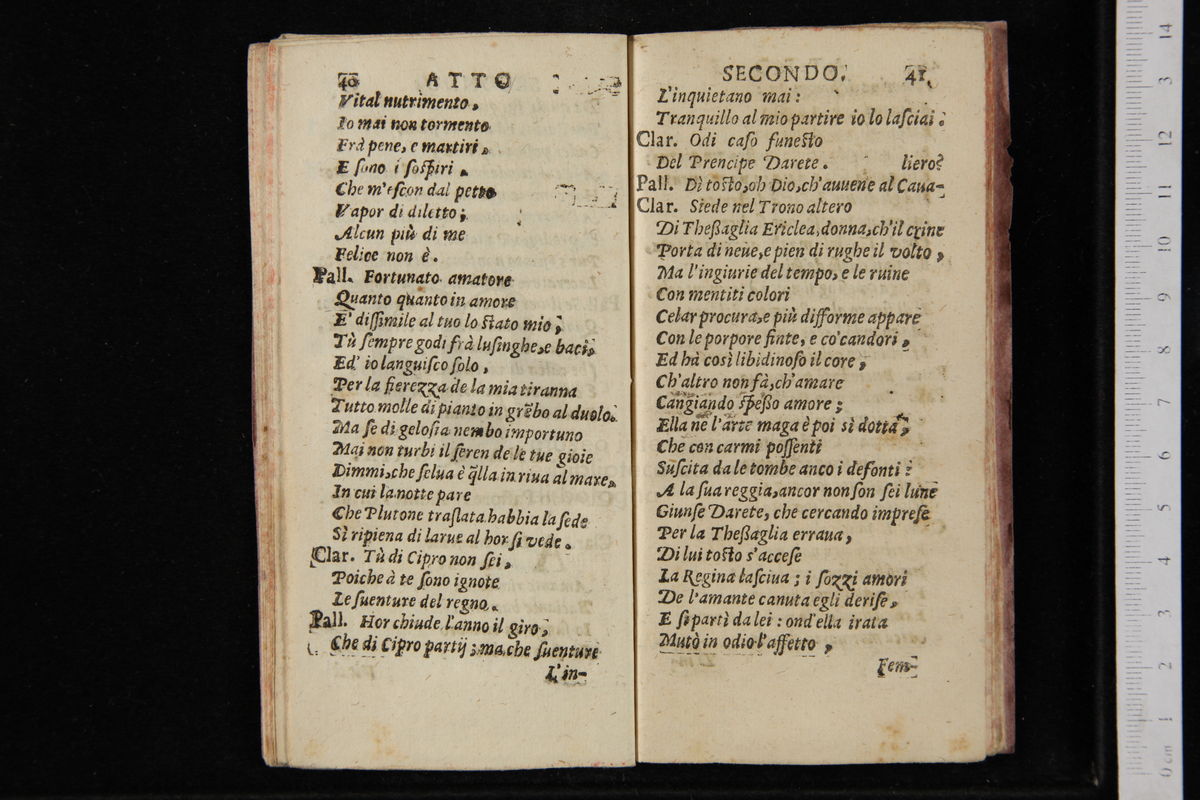 40 ATTO
Vital nutrimento,
Io mai non tormento
Frà pene, e martiri,
E ſono i ſoſpiri,
Che m'eſcon dal petto
Vapor di diletto;
Alcun più di me
Felice non è.
Pall. Fortunato amatore
Quanto quanto in amore
E' diſſimile al tuo lo ſtato mio;
Tù ſempre godi frà luſinghe, e baci,
Ed' io languiſco ſolo,
Per la fierezza de la mia tiranna
Tutto molle di pianto in grẽbo al duolo.
Ma ſe di geloſia nembo importuno
Mai non turbi il ſeren de le tue gioie
Dimmi, che ſelua è q̃lla in riua al mare,
In cui la notte pare
Che Plutone traſlata habbia la ſede
Sì ripiena di larue al hor ſi vede.
Clar. Tù di Cipro non ſei,
Poiche à te ſono ignote
Le ſuenture del regno.
Pall. Hor chiude l'anno il giro,
Che di Cipro partij; ma che ſuenture
L'in-
SECONDO. 41
L'inquietano mai:
Tranquillo al mio partire io lo laſciai.
Clar. Odi caſo funeſto
Del Prencipe Darete. liero?
Pall. Dì toſto, oh Dio, ch'auuene al Caua-
Clar. Siede nel Trono altero
Di Theßaglia Ericlea, donna, ch'il crine
Porta di neue, e pien di rughe il volto,
Ma l'ingiurie del tempo, e le ruine
Con mentiti colori
Celar procura, e più difforme appare
Con le porpore finte, e co'candori,
Ed hà così libidinoſo il core,
Ch'altro non fà, ch'amare
Cangiando ſpeßo amore;
Ella ne l'arte maga è poi sì dotta,
Che con carmi poſſenti
Suſcita da le tombe anco i defonti:
A la ſua reggia, ancor non ſon ſei lune
Giunſe Darete, che cercando impreſe
Per la Theßaglia erraua,
Di lui toſto s'acceſe
La Regina laſciua; i ſozzi amori
De l'amante canuta egli deriſe,
E ſi partì da lei: ond'ella irata
Mutò in odio l'affetto,
Fem-